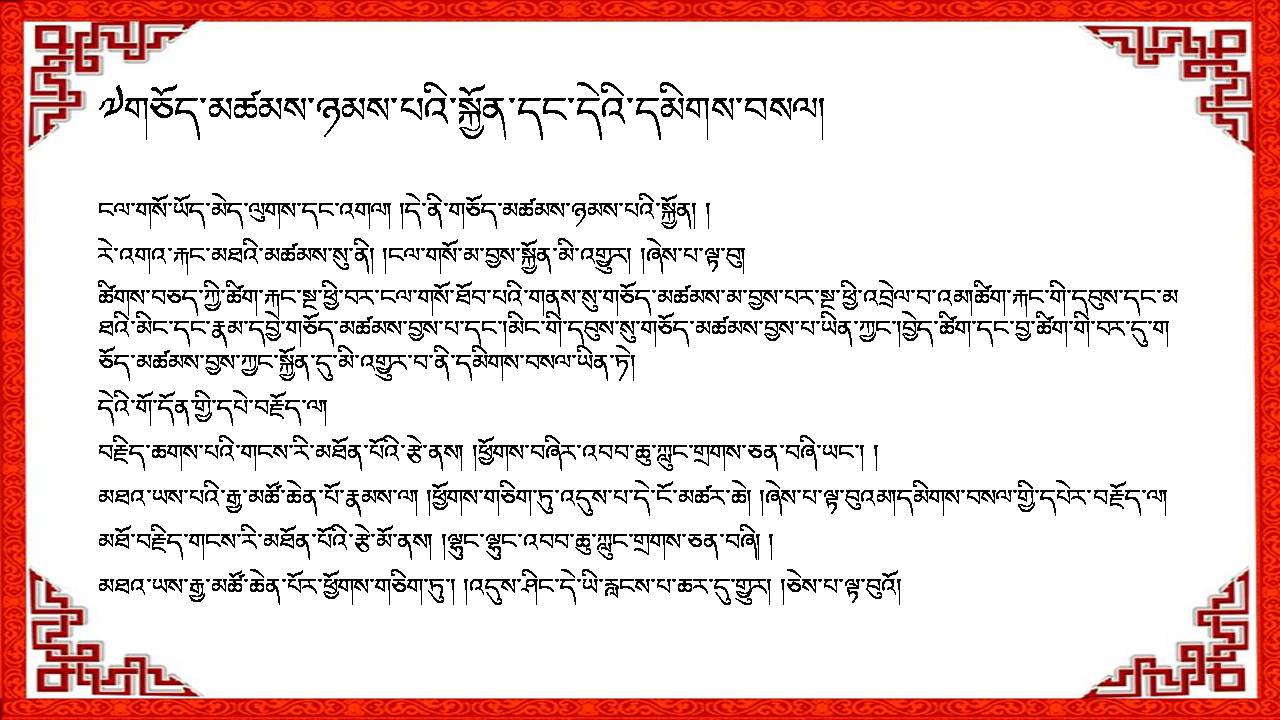 ༧གཅོད་མཚམས་ཉམས་པའི་སྐྱོན་དང་དེའི་དམིགས་བསལ།
ངལ་གསོ་ཡོད་མེད་ལུགས་དང་འགལ། །དེ་ནི་གཅོད་མཚམས་ཉམས་པའི་སྐྱོན། །
རེ་འགའ་རྐང་མཐའི་མཚམས་སུ་ནི། །ངལ་གསོ་མ་བྱས་སྐྱོན་མི་འགྱུར། །ཞེས་པ་ལྟ་བུ།
ཚིགས་བཅད་ཀྱི་ཚིག་རྐང་སྔ་ཕྱི་བར་ངལ་གསོ་ཐོབ་པའི་གནས་སུ་གཅོད་མཚམས་མ་བྱས་པར་སྔ་ཕྱི་འབྲེལ་བ་འམ།ཚིག་རྐང་གི་དབུས་དང་མ
ཐའི་མིང་དང་རྣམ་དབྱེ་གཅོད་མཚམས་བྱས་པ་དང་།མིང་གི་དབུས་སུ་གཅོད་མཚམས་བྱས་པ་ཡིན་ཀྱང་།བྱེད་ཚིག་དང་བྱ་ཚིག་གི་བར་དུ་ག
ཅོད་མཚམས་བྱས་ཀྱང་སྐྱོན་དུ་མི་འགྱུར་བ་ནི་དམིགས་བསལ་ཡིན་ཏེ།
དེའི་གོ་དོན་གྱི་དཔེ་བརྗོད་ལ།
བརྗིད་ཆགས་པའི་གངས་རི་མཐོན་པོའི་རྩེ་ནས། །ཕྱོགས་བཞིར་འབབ་ཆུ་ཀླུང་གྲགས་ཅན་བཞི་ཡང་། །
མཐའ་ཡས་པའི་རྒྱ་མཚོ་ཆེན་པོ་རྣམས་ལ། །ཕྱོགས་གཅིག་ཏུ་འདུས་པ་དེ་ངོ་མཚར་ཆེ། །ཞེས་པ་ལྟ་བུའམ།དམིགས་བསལ་གྱི་དཔེར་བརྗོད་ལ།
མཐོ་བརྗིད་གངས་རི་མཐོན་པོའི་རྩེ་མོ་ནས། །ལྷུང་ལྷུང་འབབ་ཆུ་ཀླུང་གྲགས་ཅན་བཞི། །
མཐའ་ཡས་རྒྱ་མཚོ་ཆེན་པོར་ཕྱོགས་གཅིག་ཏུ་། །འདུས་ཤིང་དེ་ཡི་རླངས་པ་ཆར་དུ་གྱུར། །ཅེས་པ་ལྟ་བུའོ།